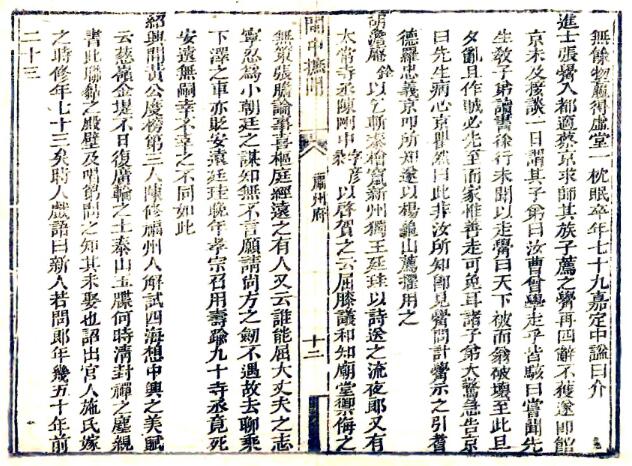 無餘物願得虛堂一枕眠卒年七十九嘉定中諡曰介
進士張觷入都適蔡京求師其族子薦之觷再四辭不獲遂即館
京未及接談一日謂其子弟曰汝曹曾學走乎皆駭曰嘗聞先
生敎子弟讀書徐行未聞以走觷曰天下被而翁破壞至此旦
夕亂且作賊必先至而家惟善走可免耳諸子弟大驚急告京
曰先生病心京瞿然曰此非汝所知卽見觷問計觷示之引耆
德羅忠義京叩所知遂以楊龜山薦擢用之
胡澹庵銓以乞斬秦檜竄新州獨王廷珪以詩送之流夜郎又有
太常寺丞陳剛中字彥柔以啓賀之云屈膝議和知廟堂禦侮之
閩中摭聞 福州府 十二
無策張膽論事喜樞庭經遠之有人又云誰能屈大丈夫之志
寧忍為小朝廷之謀知無不言願請尚方之劒不遇故去聊乘
下澤之車亦貶安遠廷珪晚年孝宗召用壽踰九十寺丞竟死
安遠無嗣幸不幸之不同如此
紹興間黃公度榜第三人陳修福州人解試四海想中興之美賦
云葱嶺金堤不日復廣輪之土泰山玉牒何時清封禪之塵親
書此聯黏之殿壁及唱名問之知其未娶也詔出宮人施氏嫁
之時修年七十三矣時人戲語曰新人若問郎年幾五十年前
二十三